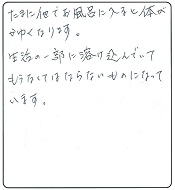 たまに他でお風呂に入ると体が
かゆくなります。
生活の一部に溶け込んでいて
もうなくてはならないものになって
います。